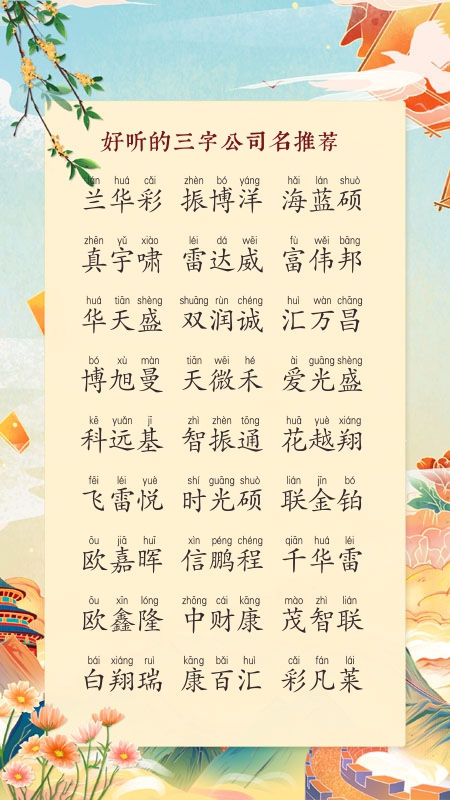 好听的三字公司名推荐
lán huá cǎi zhèn bó yáng hǎi lán shuò
兰华彩 振博洋 海蓝硕
zhēn yǔ xiào léi dá wēi fù wěi bāng
真宇啸 雷达威 富伟邦
huá tiān shèng shuāng rùn chéng huì wàn chāng
华天盛 双润诚 汇万昌
bó xù màn tiān wēi hé ài guāng shèng
博旭曼 天微禾 爱光盛
kē yuǎn jī zhì zhèn tōng huā yuè xiáng
科远基 智振通 花越翔
fēi léi yuè shí guāng shuò lián jīn bó
飞雷悦 时光硕 联金铂
ōu jiā huī xìn péng chéng qiān huá léi
欧嘉晖 信鹏程 千华雷
ōu xīn lóng zhōng cái kāng mào zhì lián
欧鑫隆 中财康 茂智联
bái xiáng ruì kāng bǎi huì cǎi fán lái
白翔瑞 康百汇 彩凡莱